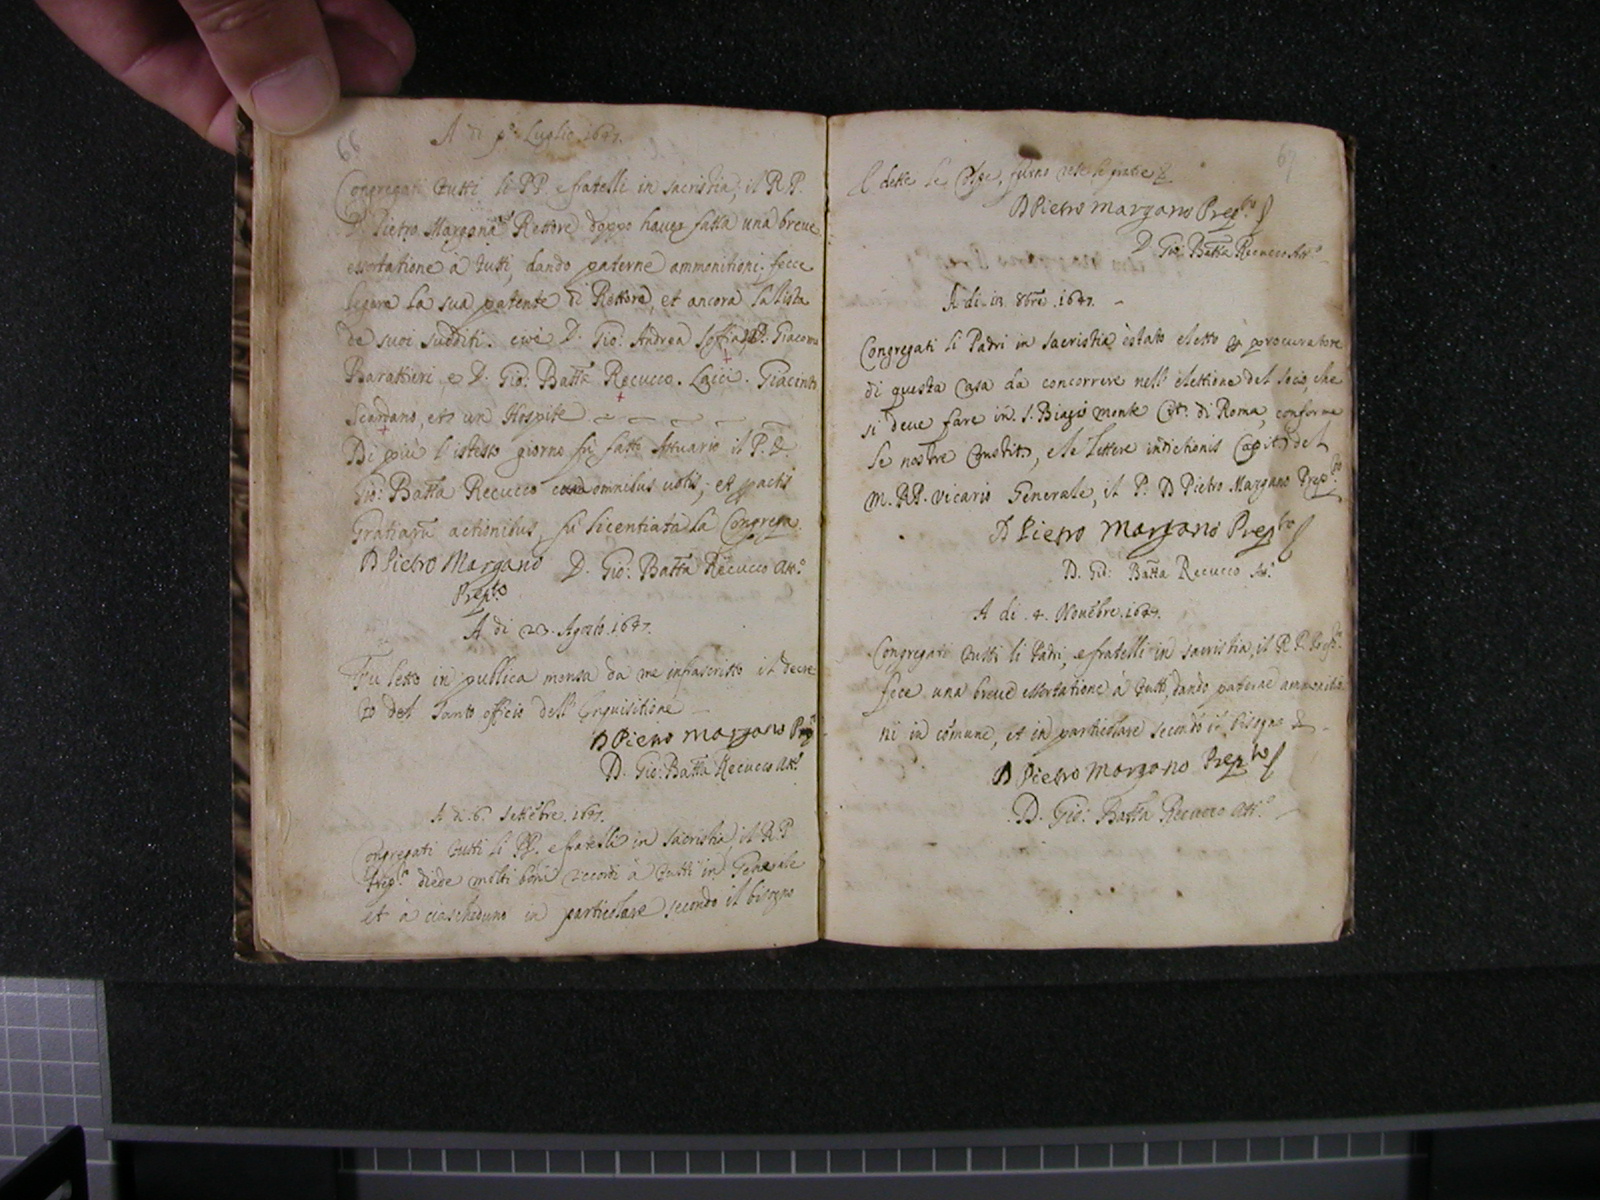 66
A di p.º Luglio. 1647.
Congregati tutti li PP. e fratelli in sacristia, il R. P.
D. Pietro Margana Rettore doppo hauer fatta una breue
essortatione à tutti, dando paterne ammonitioni. fecce
legere la sua patente di Rettore, et ancora la lista
de suoi sudditi. cioè D. Gio: Andrea Soffia, D. Giacomo
Barattieri, e D. Gio: Batta Recucco. Laici. Giacinto
Scardano, et un Hospite
Di più l'istesso giorno fu fatto Attuario il P. D.
Gio: Batta Recucco omnibus uotis; et peractis
Gratiarū actionibus, fu licentiata la Congrega.
D Pietro Margano D. Gio: Batta Recucco Att.º
Prep.to
A di 23. Agosto. 1647.
Fu letto in publica mensa da me infrascritto il decre
to del Santo officio dell' Inquisitione
D Pietro Margano
D. Gio: Batta Recucco Att.º
A di 6. Settēbre. 1647.
Congregati tutti li PP. e fratelli in sacristia, il R. P.
Prep.to diede molti boni ricordi à tutti in Generale
et à ciascheduno in particolare secondo il bisogno
67
E dette le Colpe, furno rese le gratie &
D Pietro Margano Prep.to
D. Gio: Batta Recucco Att.º
A di 13. 8bre. 1647.
Congregati li Padri in sacristia è stato eletto p procuratore
di questa Casa da concorrere nell' elettione del socio, che
si deue fare in S. Biagio monte Cit. di Roma, conforme
le nostre Constit.i, e le lettere indictionis Capit.i del
M. R. P. Vicario Generale, il P. D Pietro Margano Prep.to
D Pietro Margano Prep.to
D. Gio: Batta Recucco Att.º
A di 4. Nouēbre. 1647.
Congregati tutti li Padri, e fratelli in sacristia, il R. P. Prep.to
fece una breue essortatione à tutti, dando paterne ammonitio
ni in comune, et in particolare secondo il bisogno &
D Pietro Margano Prep.to
D. Gio: Batta Recucco Att.º